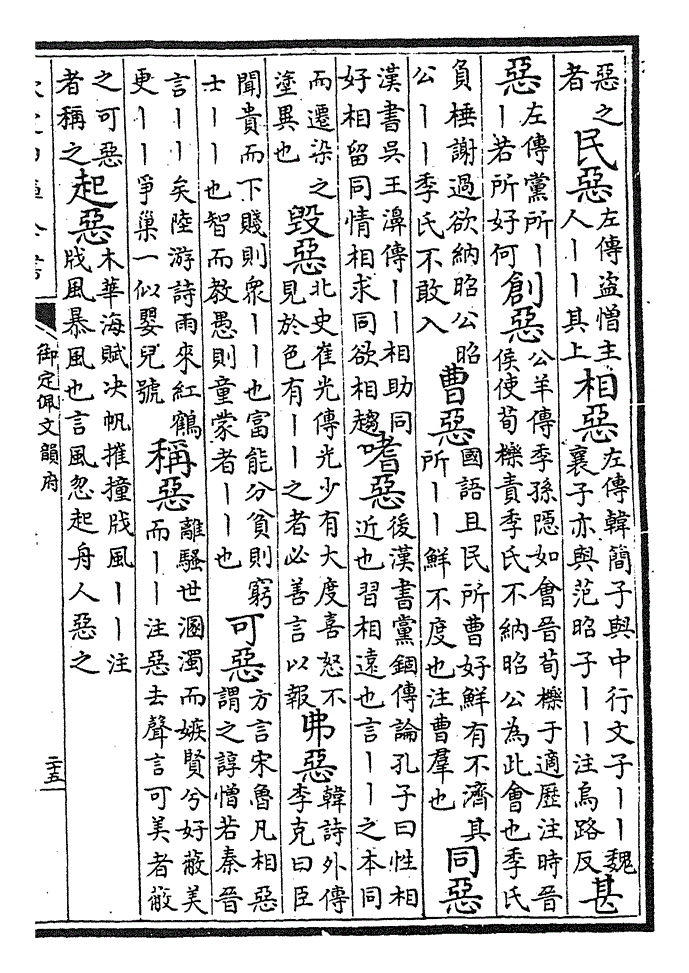 惡之者民惡左傳盜憎主人丨丨其上相惡左傳韓簡子與中行文子丨丨魏襄子亦與范昭子丨丨注烏路反甚
惡左傳黨所丨丨若所好何創惡公羊傳季孫隱如會晉荀櫟于適歷注時晉侯使荀櫟責季氏不納昭公為此會也季氏
負捶謝過欲納昭公昭公丨丨季氏不敢入曹惡國語且民所曹好鮮有不濟其所丨丨鮮不度也注曹羣也同惡
漢書吳王濞傳丨丨相助同好相留同情相求同欲相趨嗜惡後漢書黨錮傳論孔子曰性相近也習相遠也言丨丨之本同
而遷染之塗異也毀惡北史崔光傳光少有大度喜怒不見於色有丨丨之者必善言以報弗惡韓詩外傳李克曰臣
聞貴而下賤則衆丨丨也富能分貧則窮士丨丨也智而教愚則童蒙者丨丨也可惡方言宋魯凡相惡謂之諄憎若秦晉
言丨丨矣陸游詩雨來紅鶴更丨丨爭巢一似嬰兒號稱惡離騷世溷濁而嫉賢兮好蔽美而丨丨注惡去聲言可美者蔽
之可惡者稱之起惡木華海賦决帆摧撞戕風丨丨注戕風暴風也言風忽起舟人惡之
御定佩文韻府
二十五